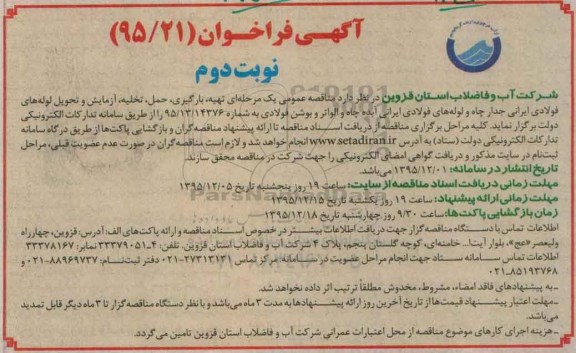 آگهی فراخوان (۹۵/۲۱)
نوبت دوم
شرکت آب و فاضلاب استان قزوین در نظر دارد مناقصه عمومی یک مرحله‌ای تهیه، بارگیری، حمل، تخلیه، آزمایش و تحویل لوله‌های
فولادی ایرانی جدار چاه و لوله‌های فولادی ایرانی آبده چاه و الواتر و بوشن فولادی به شماره ۹۵/۱۳/۱۴۳۷۶ را از طریق سامانه تدارکات الکترونیکی
دولت برگزار نماید. کلیه مراحل برگزاری مناقصه از دریافت اسناد مناقصه تا ارائه پیشنهاد مناقصه‌گران و بازگشایی پاکت‌ها از طریق درگاه سامانه
تدارکات الکترونیکی دولت (ستاد) به آدرس www.setadiran.ir انجام خواهد شد و لازم است مناقصه‌گران در صورت عدم عضویت قبلی، مراحل
ثبت‌نام در سایت مذکور و دریافت گواهی امضای الکترونیکی را جهت شرکت در مناقصه محقق سازند.
تاریخ انتشار در سامانه: ۱۳۹۵/۱۲/۰۱ می‌باشد.
مهلت زمانی دریافت اسناد مناقصه از سایت: ساعت ۱۹ روز پنجشنبه تاریخ ۱۳۹۵/۱۲/۰۵
مهلت زمانی ارائه پیشنهاد: ساعت ۱۹ روز یکشنبه تاریخ ۱۳۹۵/۱۲/۱۵
زمان بازگشایی پاکت‌ها: ساعت ۹/۳۰ روز چهارشنبه تاریخ ۱۳۹۵/۱۲/۱۸
اطلاعات تماس با دستگاه مناقصه‌گزار جهت دریافت اطلاعات بیشتر در خصوص اسناد مناقصه و ارائه پاکت‌های الف: آدرس: قزوین، چهارراه
ولیعصر «عج»، بلوار آیت‌ا... خامنه‌ای، کوچه گلستان پنجم، پلاک ۴ شرکت آب و فاضلاب استان قزوین. تلفن: ۴-۳۳۳۷۹۰۵۱ نمابر: ۳۳۳۷۸۱۶۷
اطلاعات تماس سامانه ستاد جهت انجام مراحل عضویت در سامانه: مرکز تماس ۲۷۳۱۳۱۳۱-۰۲۱ دفتر ثبت‌نام: ۸۸۹۶۹۷۳۷-۰۲۱ و
۸۵۱۹۳۷۶۸-۰۲۱
-به پیشنهادهای فاقد امضاء، مشروط، مخدوش مطلقاً ترتیب اثر داده نخواهد شد.
-مهلت اعتبار پیشنهاد قیمت‌ها از تاریخ آخرین روز ارائه پیشنهادها به مدت ۳ ماه می‌باشد و با نظر دستگاه مناقصه‌گزار تا ۳ ماه دیگر قابل تمدید
می‌باشد.
-هزینه اجرای کارهای موضوع مناقصه از محل اعتبارات عمرانی شرکت آب و فاضلاب استان قزوین تامین می‌گردد.